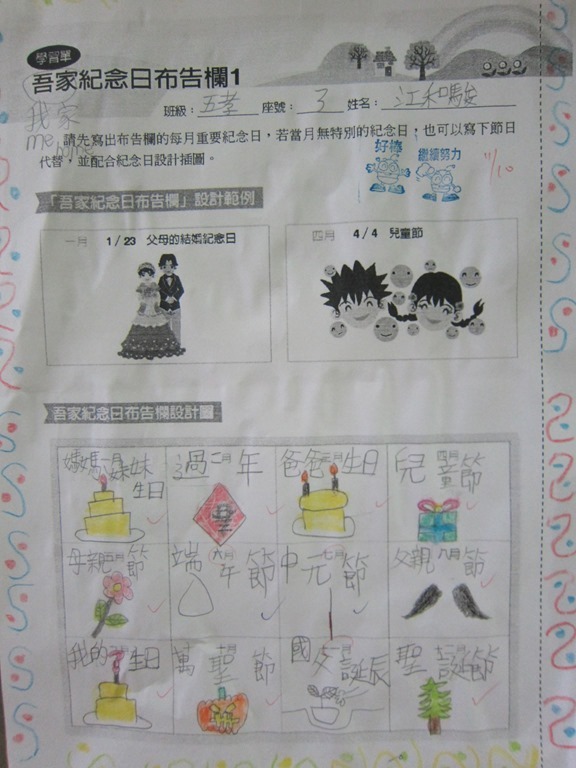 學習單
吾家紀念日布告欄1
班級：五孝 座號：3 姓名：江和駿
我家
me home
請先寫出布告欄的每月重要紀念日，若當月無特別的紀念日，也可以寫下節日
代替，並配合紀念日設計插圖。
好棒
繼續努力
11/10
「吾家紀念日布告欄」設計範例
一月 1/23 父母的結婚紀念日
四月 4/4 兒童節
吾家紀念日布告欄設計圖
媽媽一月妹妹
生日
過二月年
爸爸三月生日
兒四月童節
母親五月節
端六月午節
中七月元節
父親八月節
我的九月生日
萬十月聖節
國父十一月誕辰
聖十二月誕節